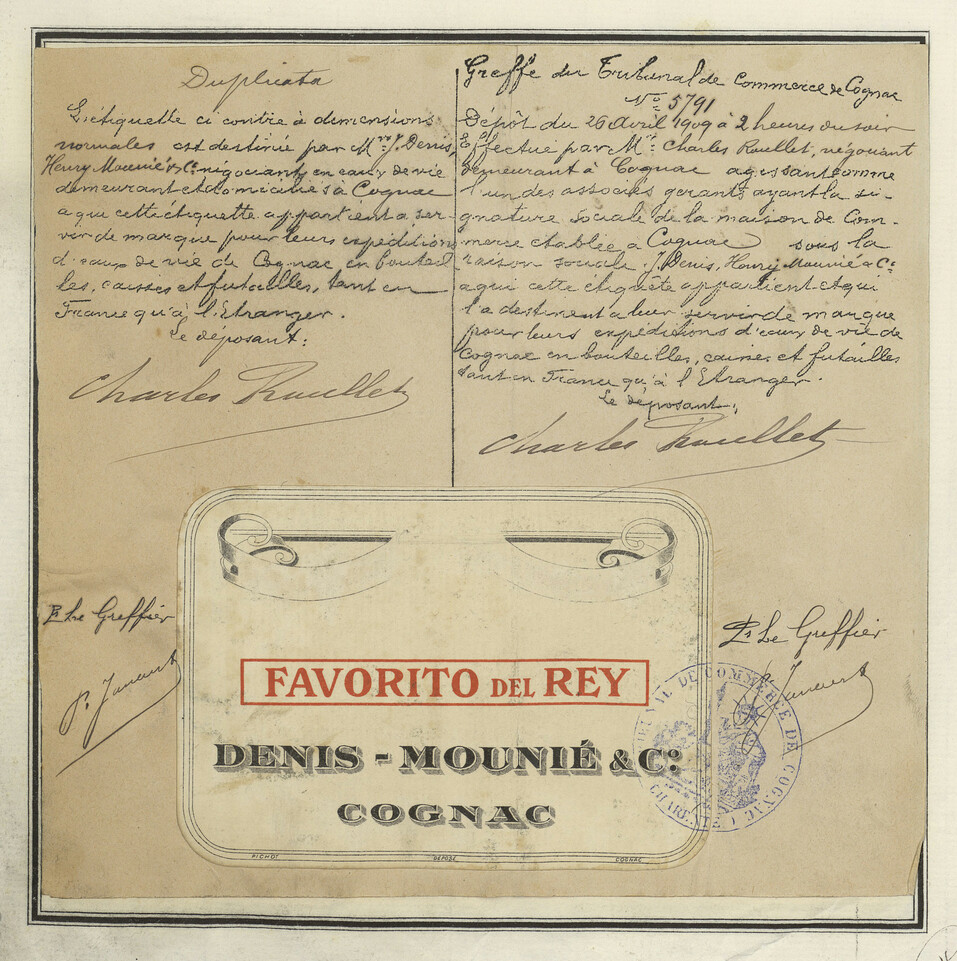 Duplicata
L'étiquette ci contre à dimensions
normales est destinée par Mrs J. Denis,
Henry Mounié & Cie négociants en eaux de vie
demeurant et domiciliés à Cognac
a qui cette étiquette appartient a ser-
vir de marque pour leurs expéditions
d'eaux de vie de Cognac en bouteil
les, caisses et futailles, tant en
France qu'à l'Etranger.
Le déposant:
Charles Roullet
Greffe du Tribunal de Commerce de Cognac
No 5791
Dépôt du 26 Avril 1909 à 2 heures du soir
Effectué par Mr Charles Roullet, négociant
demeurant à Cognac agissant comme
l'un des associés gérants ayant la si-
gnature sociale de la maison de Com-
merce établie a Cognac sous la
raison sociale J. Denis, Henry Mounié & Cie
a qui cette etiquête appartient et qui
l'a destinent a leur servir de marque
pour leurs expéditions d'eaux de vie de
Cognac en bouteilles, caisses et futailles
tant en France qu'à l'Etranger.
Le déposant:
Charles Roullet
Pr Le Greffier
Pr Le Greffier
FAVORITO DEL REY
DENIS - MOUNIÉ & Co
COGNAC
PICHOT DÉPOSÉ COGNAC
TRIBUNAL DE COMMERCE DE COGNAC (CHARENTE)